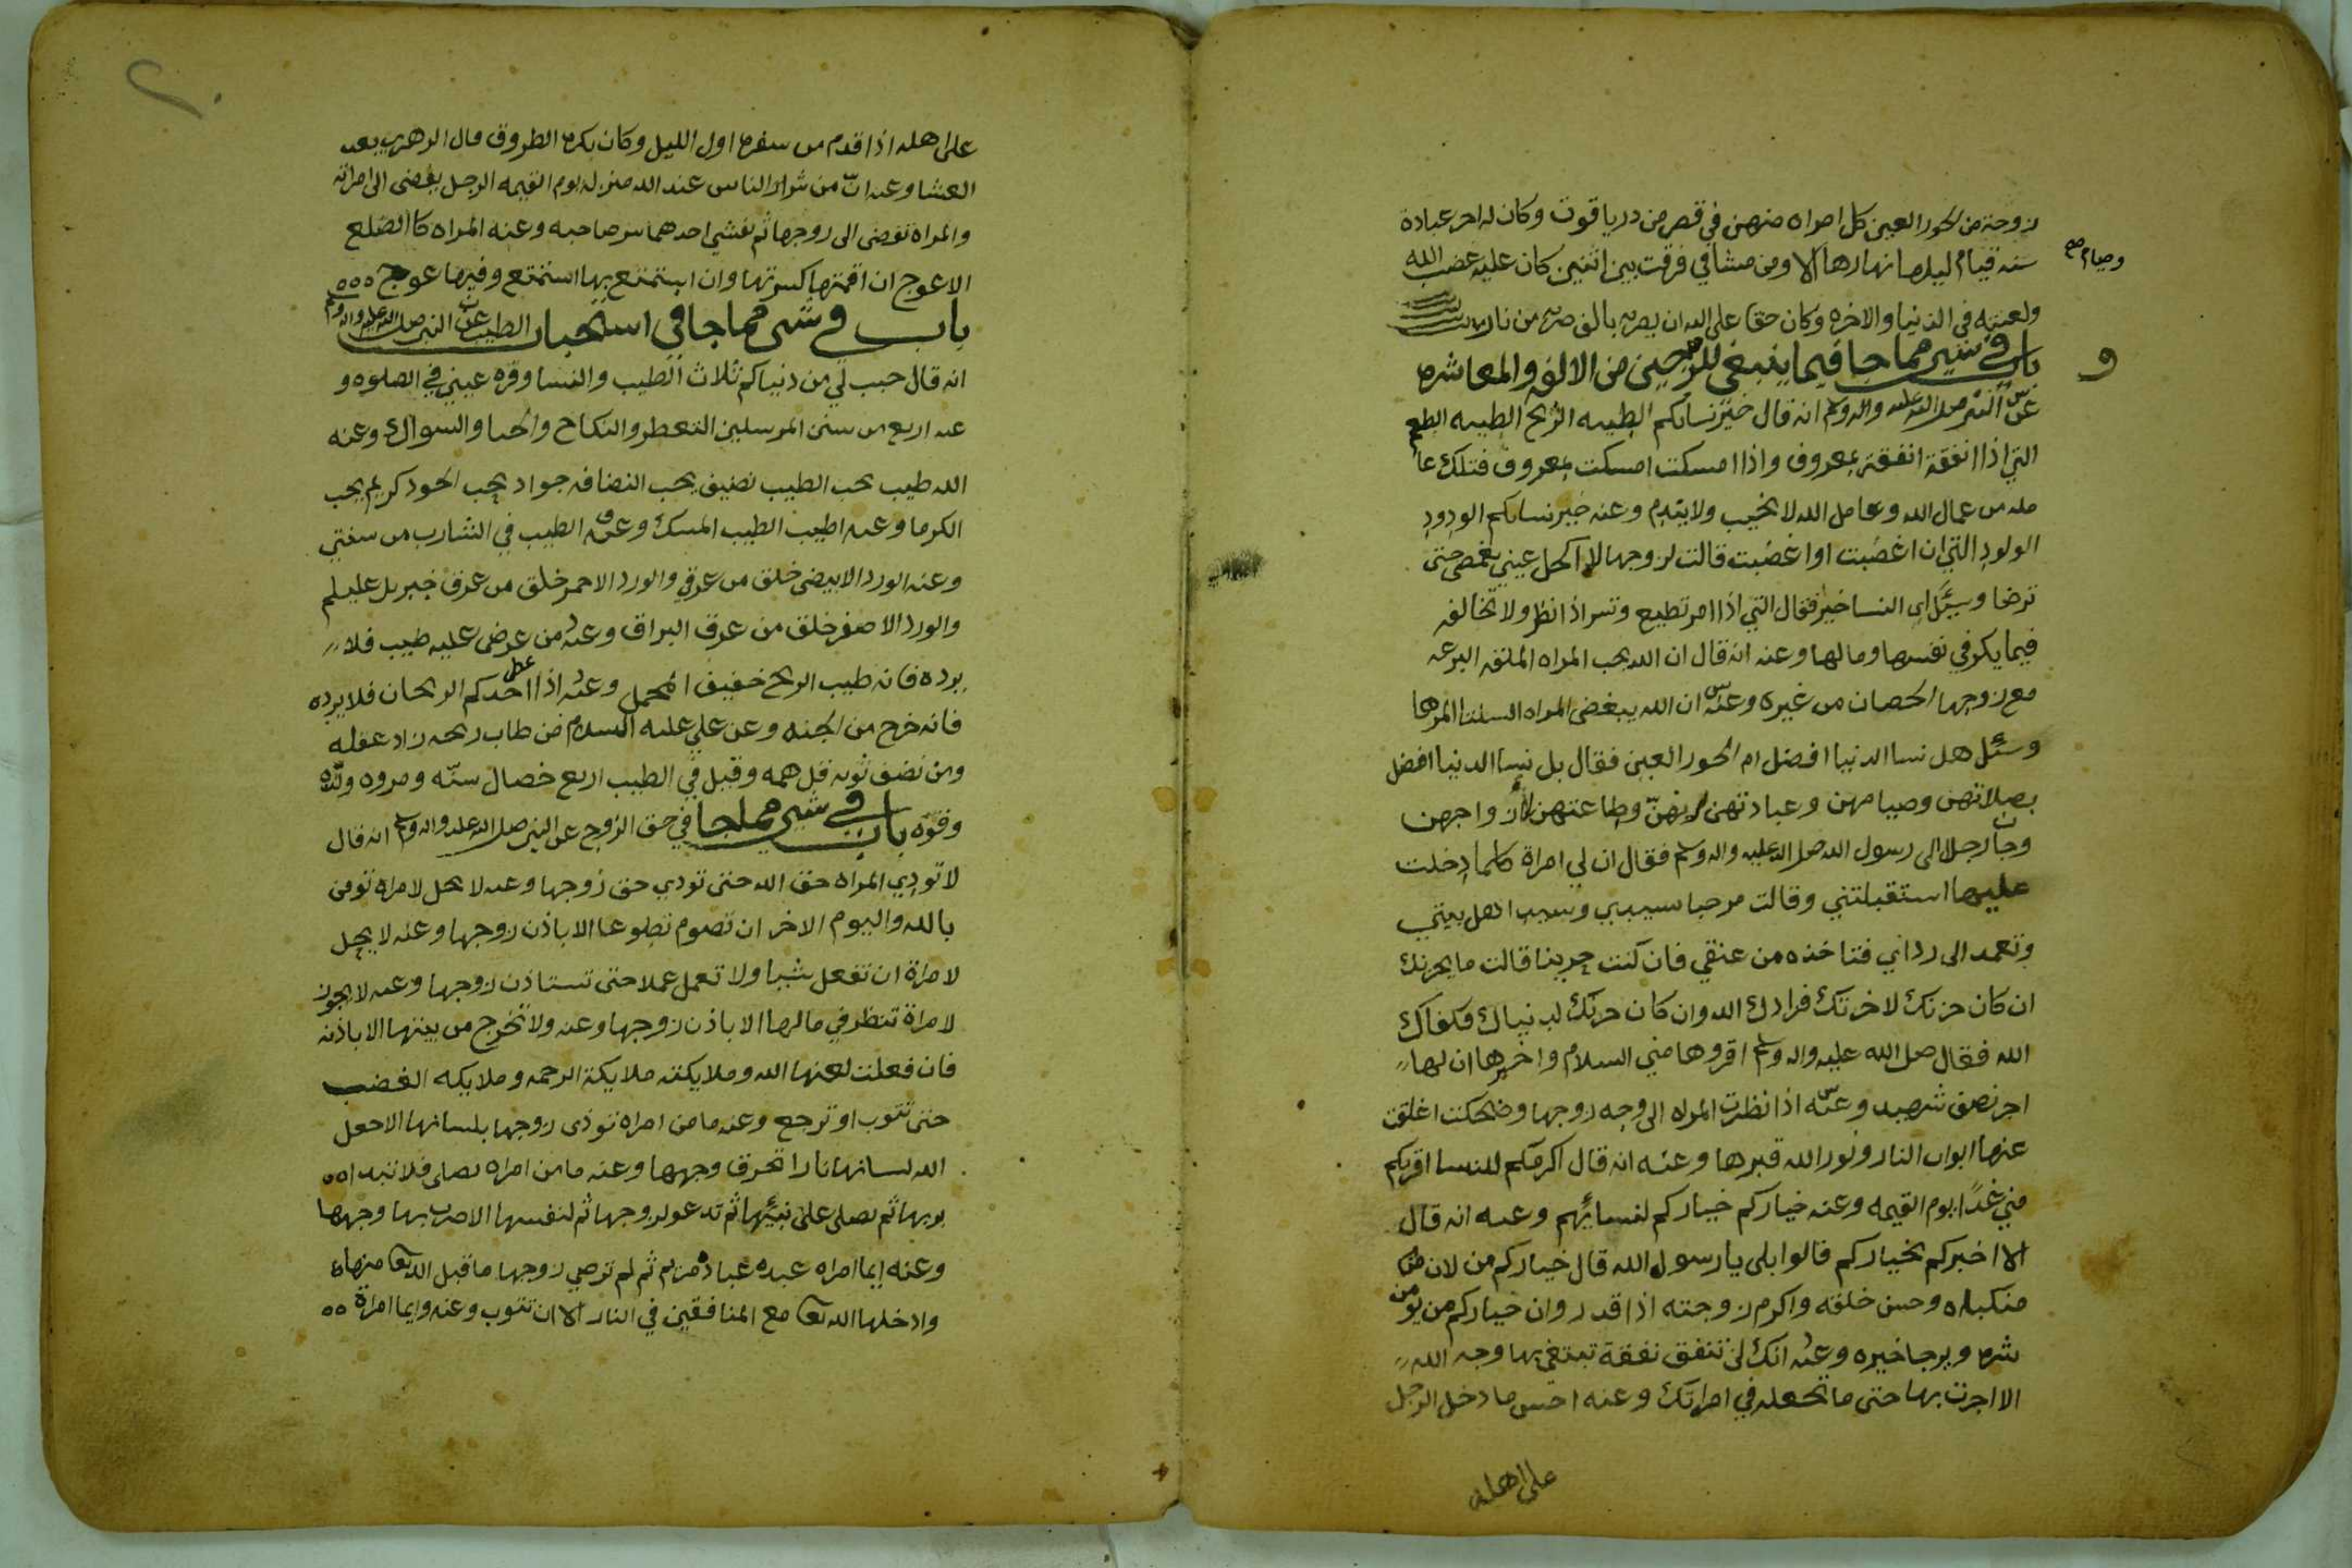 زوجة من الحور العين كل امراه منهن في قصر من در ياقوت وكان له اجر عبادة
سنه قيام ليلها نهارها الا ومن مشا في فرقت بين اثنين كان عليه غضب الله
وصيام صح
ولعنته في الدنيا والاخره وكان حقا على الله ان يضربه بالف ضربه من نار
باب في شي مما جا فيما ينبغي للزوجين من الالفه والمعاشره
عن النبي صلى الله عليه واله وسلم انه قال خير نسائكم الطيبه الريح الطيبه الطعم
التي اذا انفقت انفقت بمعروف واذا امسكت امسكت بمعروف فتلك عا
مله من عمال الله وعامل الله لا يخيب ولا يندم وعنه خير نسائكم الودود
الولود التي ان اغضبت او اغضبت قالت لزوجها لا اكحل عيني بغمض حتى
ترضا وسئل اي النسا خير فقال التي اذا امر تطيع وتسر اذا نظر ولا تخالفه
فيما يكره في نفسها ومالها وعنه انه قال ان الله يحب المراه الملقه البرعه
مع زوجها الحصان من غيره وعنه ان الله يبغض المراه السلتا المرها
وسئل هل نسا الدنيا افضل ام الحور العين فقال بل نسا الدنيا افضل
بصلاتهن وصيامهن وعبادتهن لربهن وطاعتهن لأزواجهن
وجا رجل الى رسول الله صلى الله عليه واله وسلم فقال ان لي امراة كلما دخلت
عليها استقبلتني وقالت مرحبا بسيدي وسيد اهل بيتي
وتعمد الى رداني فتاخذه من عنقي فان كنت حزينا قالت ما يحزنك
ان كان حزنك لاخرتك فزادك الله وان كان حزنك لدنياك فكفاك
الله فقال صلى الله عليه واله وسلم اقروها مني السلام واخبرها ان لها
اجر نصف شهيد وعنه اذا نظرت المراه الى وجه زوجها وضحكت اغلقت
عنها ابواب النار ونور الله قبرها وعنه انه قال اكرمكم للنسا اقربكم
مني غدًا يوم القيمه وعنه خياركم خياركم لنسائهم وعنه انه قال
الا اخبركم بخياركم قالوا بلى يا رسول الله قال خياركم من لان
منكباه وحسن خلقه واكرم زوجته اذا قدر وان خياركم من يومن
شره ويرجا خيره وعنه انك لن تنفق نفقة تبتغي بها وجه الله
الا اجرت بها حتى ما تجعله في امراتك وعنه احسن ما دخل الرجل
على اهله
على اهله اذا قدم من سفره اول الليل وكان يكره الطروق قال الزهري بعد
العشا وعنه انّ من شرار الناس عند الله منزله يوم القيمه الرجل يفضي الى امراته
والمراه تفضي الى زوجها ثم يفشي احدهما سر صاحبه وعنه المراه كالضلع
الاعوج ان اقمتها كسرتها وان استمتع بها استمتع وفيها عوج
باب في شي مما جا في استحباب الطيب عن النبي صلى الله عليه واله وسلم
انه قال حبب لي من دنياكم ثلاث الطيب والنسا وقره عيني في الصلوه و
عنه اربع من سنن المرسلين التعطر والنكاح والحيا والسواك وعنه
الله طيب يحب الطيب نضيف يحب النضافه جواد يحب الجود كريم يحب
الكرما وعنه اطيب الطيب المسك وعنه الطيب في الشارب من سنتي
وعنه الورد الابيض خلق من عرقي والورد الاحمر خلق من عرق جبريل عليلم
والورد الاصفر خلق من عرق البراق وعنه من عرض عليه طيب فلا
يرده فانه طيب الريح خفيف المحمل وعنه اذا اعطي احدكم الريحان فلا يرده
فانه خرج من الجنه وعن علي عليه السلام من طاب ريحه زاد عقله
ومن نضف ثوبه قل همه وقيل في الطيب اربع خصال سنّه ومروه ولذّه
وقوّه باب في شي مما جا في حق الزوج عن النبي صلى الله عليه واله وسلم انه قال
لا تودي المراه حق الله حتى تودي حق زوجها وعنه لا يحل لامراه تومن
بالله واليوم الاخر ان تصوم تطوعا الا باذن زوجها وعنه لا يحل
لامراة ان تفعل شيا ولا تعمل عملا حتى تستاذن زوجها وعنه لا يجوز
لامراة تنظر في مالها الا باذن زوجها وعنه ولا تخرج من بيتها الا باذنه
فان فعلت لعنها الله وملايكته ملايكة الرحمه وملايكه الغضب
حتى تتوب او ترجع وعنه ما من امراه توذي زوجها بلسانها الا جعل
الله لسانها نارا تحرق وجهها وعنه ما من امراه تصلي فلا تبدا
بربها ثم تصلي على نبيّها ثم تدعو لزوجها ثم لنفسها الا ضرب بها وجهها
وعنه ايما امراه عبده عبادة مريم ثم لم ترضي زوجها ما قبل الله تعا منها
وادخلها الله تعا مع المنافقين في النار الا ان تتوب وعنه وايما امراة